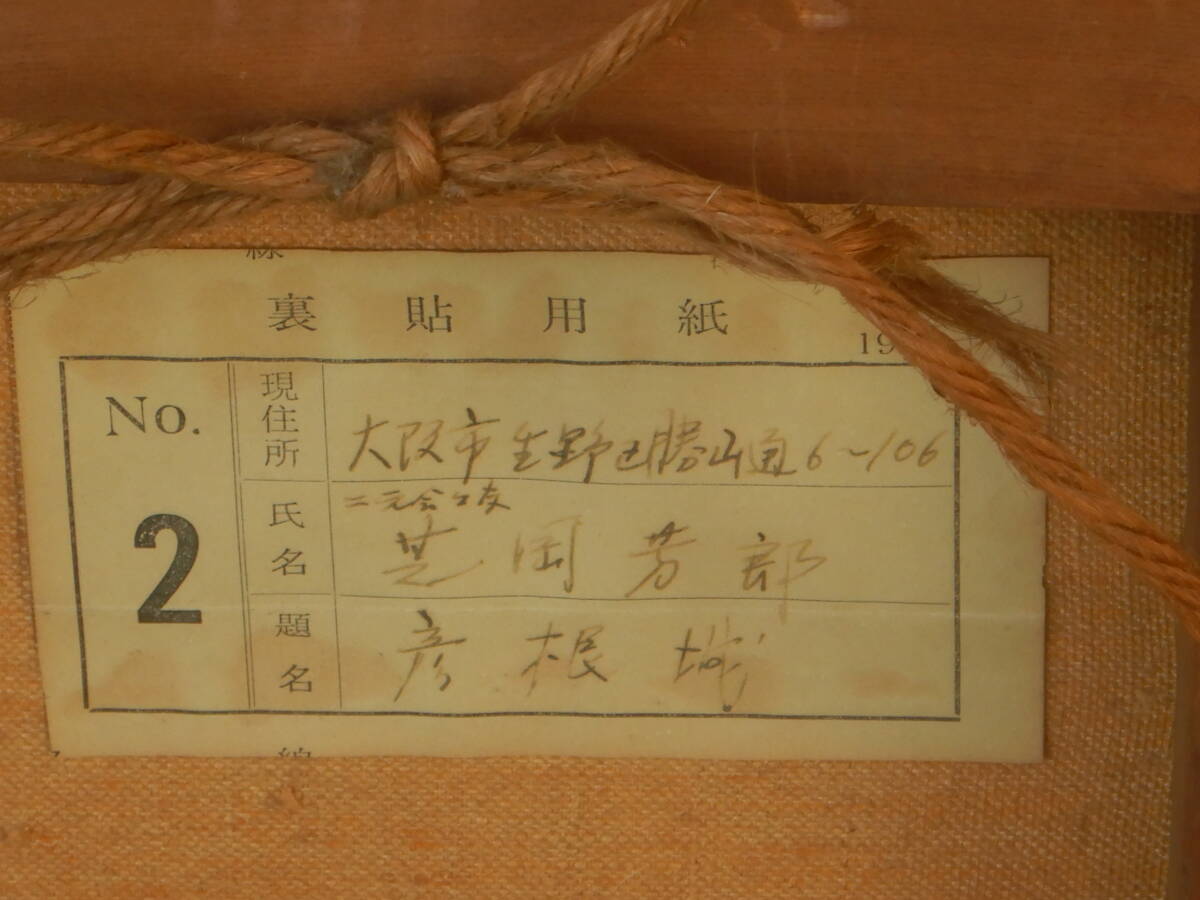 裏貼用紙
19
No. 2
現住所 大阪市生野区勝山通6〜106
二元会会友
氏名 芝岡芳郎
題名 彦根城